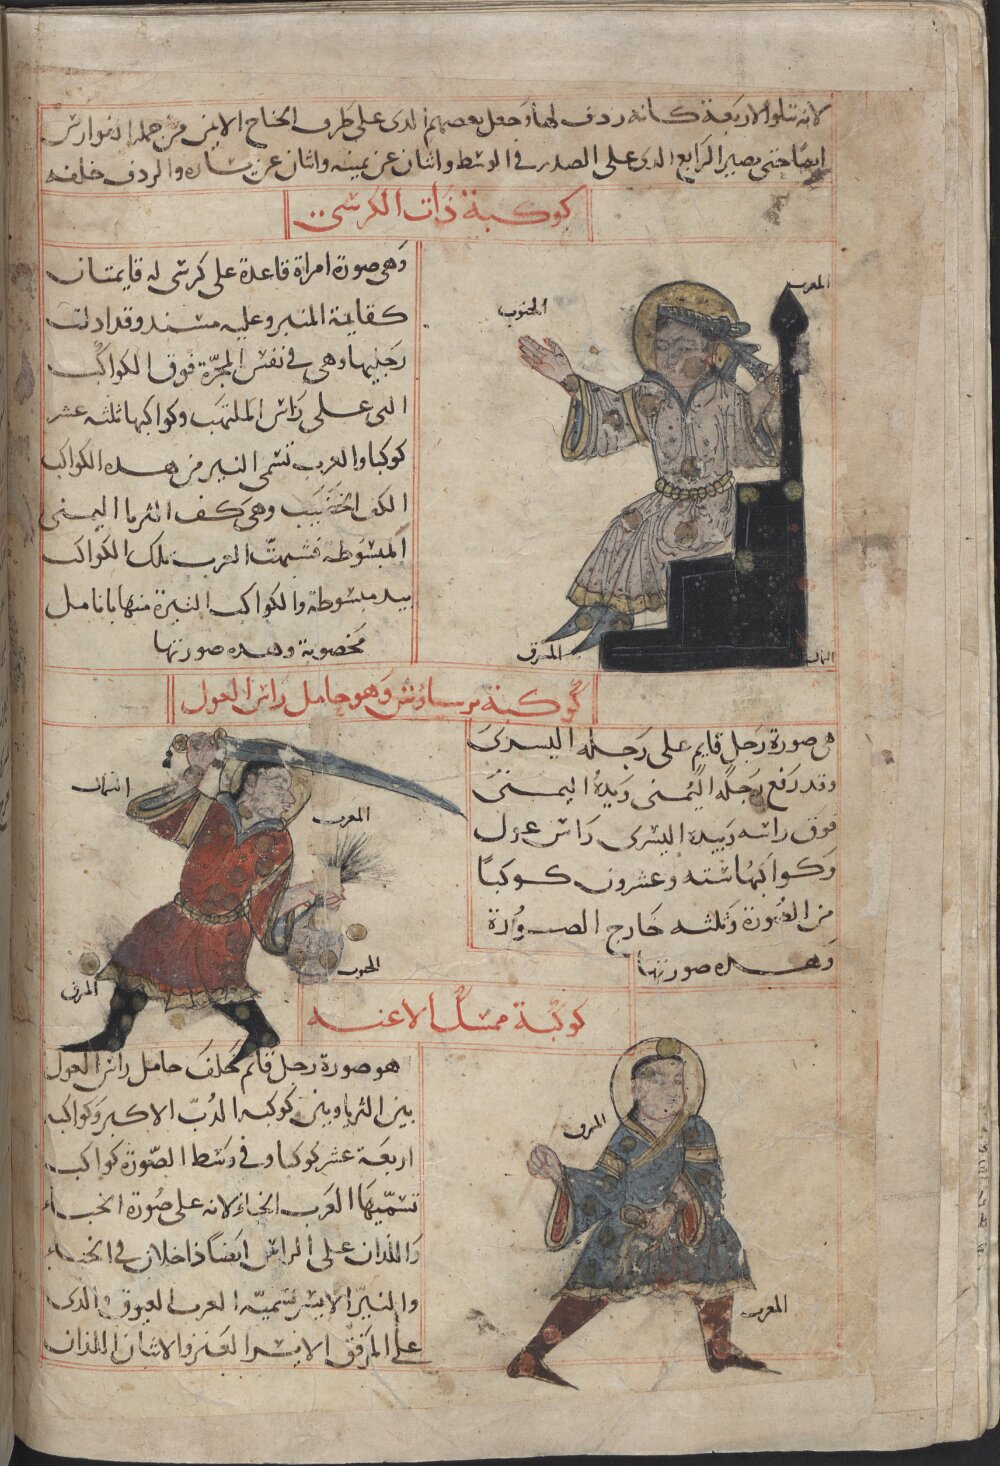 لانه تتلوا الاربعة كانه ردف لها وجعل بعضهم الذى على طرف الجناح الايمن من جملة الفوارس
ايضا حتى يصير الرابع الذى على الصدر فى الوسط واثنان عن يمينه واثنان عن يساره والردف خلفه
كوكبة ذات الكرسى
وهى صورة امراة قاعدة على كرسى له قايمتان
كقايمة المنبر وعليه مسند وقد ادلت
رجليها وهى فى نفس المجرّة فوق الكواكب
التى على راس الملتهب وكواكبها ثلثه عشر
كوكبا والعرب تسمى النير من هذه الكواكب
الكف الخضيب وهى كف الثريا اليمنى
المبسوطة فشبهت العرب تلك الكواكب
بيد مبسوطة والكواكب النيرة منها بانامل
مخضوبة وهذه صورتها
الجنوب
المغرب
المشرق
الشمال
كوكبة برساوش وهو حامل راس الغول
هى صورة رجل قايم على رجله اليسرى
وقد رفع رجله اليمنى ويده اليمنى
فوق راسه وبيده اليسرى راس غول
وكواكبها ستة وعشرون كوكبًا
من الصورة وثلثه خارج الصورة
وهذه صورتها
الشمال
المغرب
الجنوب
المشرق
كوكبة ممسك الاعنه
هو صورة رجل قايم خلف حامل راس الغول
بين الثريا وبين كوكبه الدبّ الاكبر وكواكبه
اربعة عشر كوكبا وفى وسط الصورة كواكب
تسميها العرب الخباء لانه على صورة الخباء
واللذان على الراس ايضًا داخلان فى الخباء
والنيّر الايسر تسميه العرب العيوق والذى
على المرفق الايسر العنز والاثنان اللذان
المشرق
المغرب